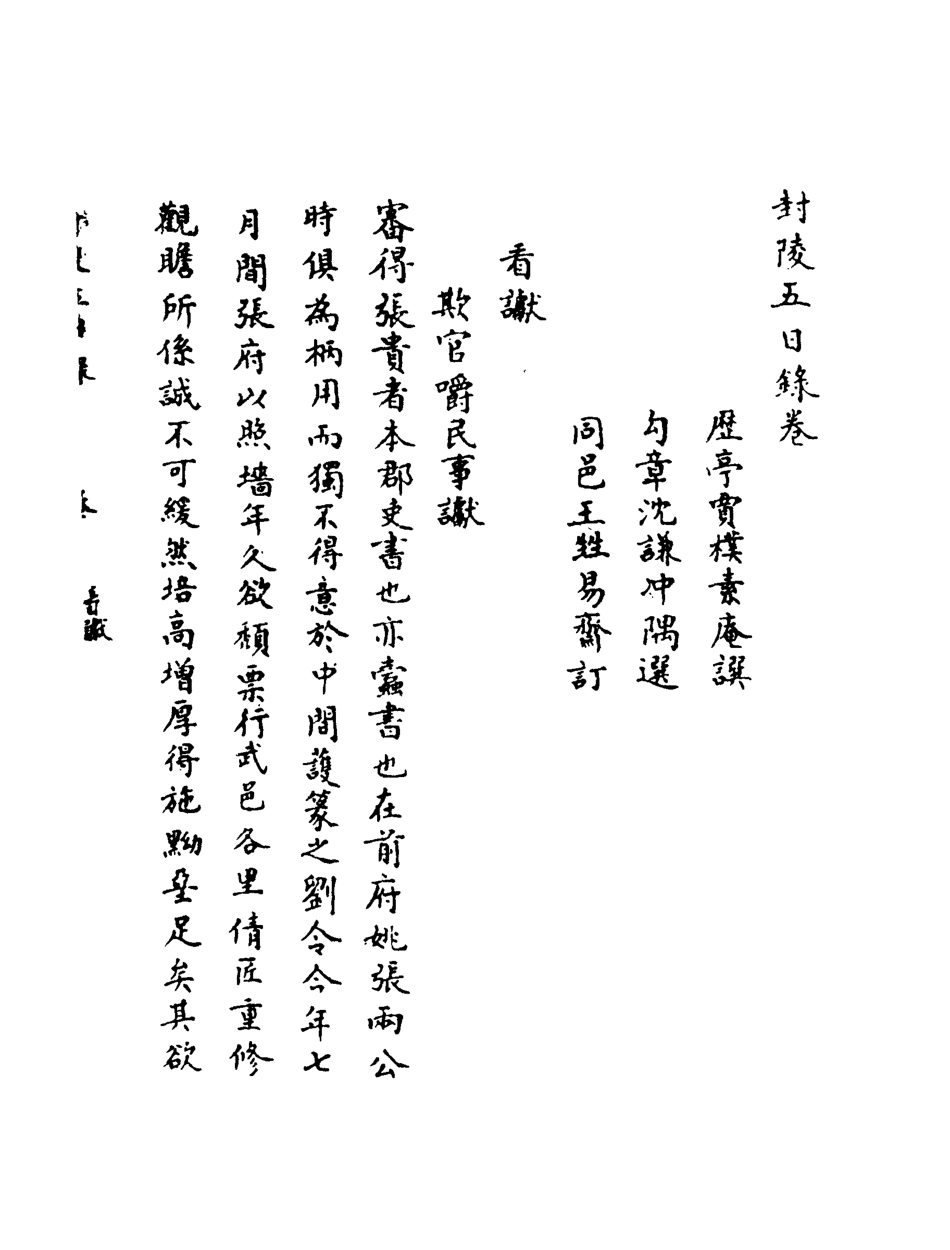 封陵五日錄卷
歷亭賈樸素庵譔
勾章沈謙冲隅選
同邑王甡易齋訂
看讞
欺官嚼民事讞
審得張貴者本郡吏書也亦蠹書也在前府姚張兩公
時俱為柄用而獨不得意於中間護篆之劉令今年七
月間張府以照墻年久欲頹票行武邑各里倩匠重修
觀瞻所係誠不可緩然培高增厚得施黝堊足矣其欲
看讞